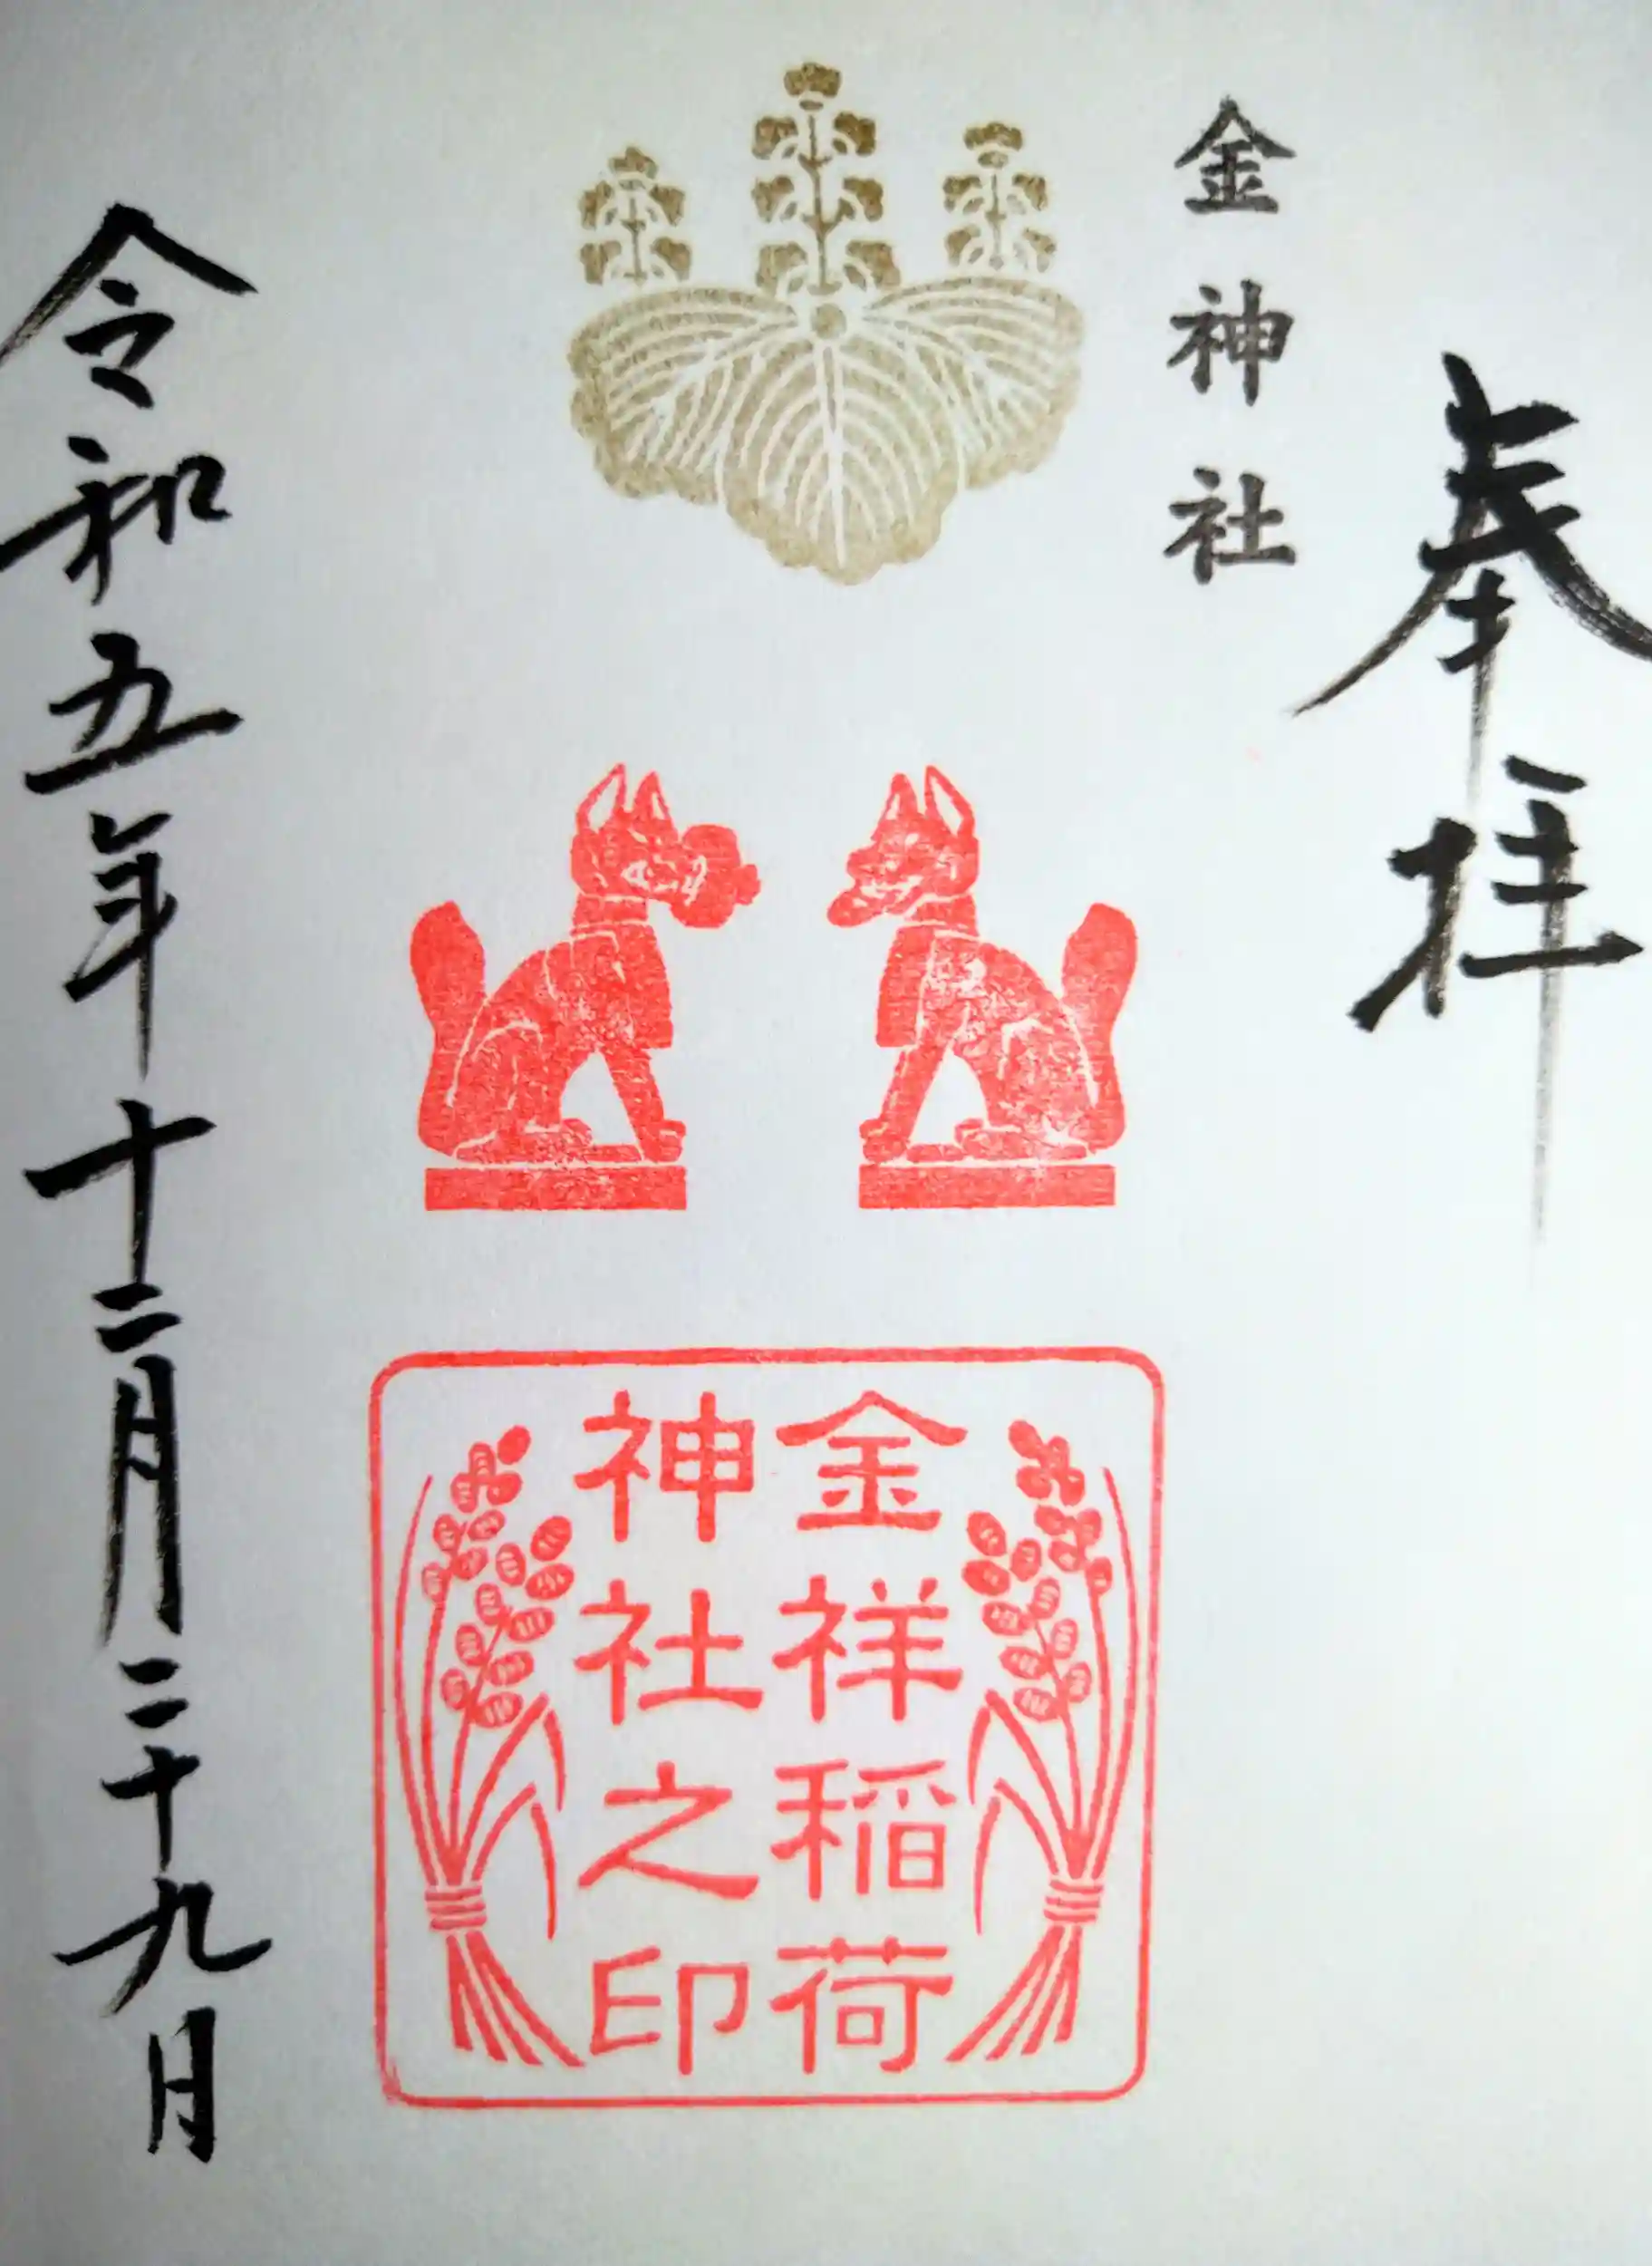 奉拝
金神社
金祥稲荷
神社之印
令和五年十二月二十九日